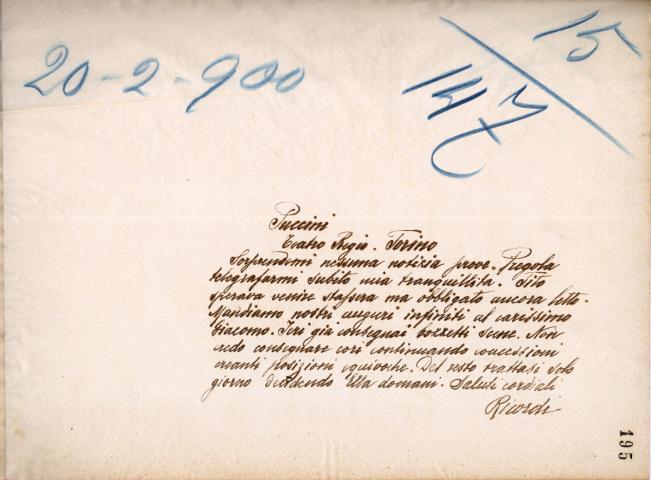 20-2-900
15
147
Puccini
Teatro Regio. Torino
Sorprendemi nessuna notizia prove. Pregola
telegrafarmi subito mia tranquillità. Tito
sperava venire stassera ma obbligato ancora letto.
Mandiamo nostri auguri infiniti al carissimo
Giacomo. Ieri già consegnai bozzetti scene. Non
credo consegnare cori continuando concessioni
creanti posizioni equivoche. Del resto trattasi solo
giorno decidendo Ella domani. Saluti cordiali
Ricordi
195